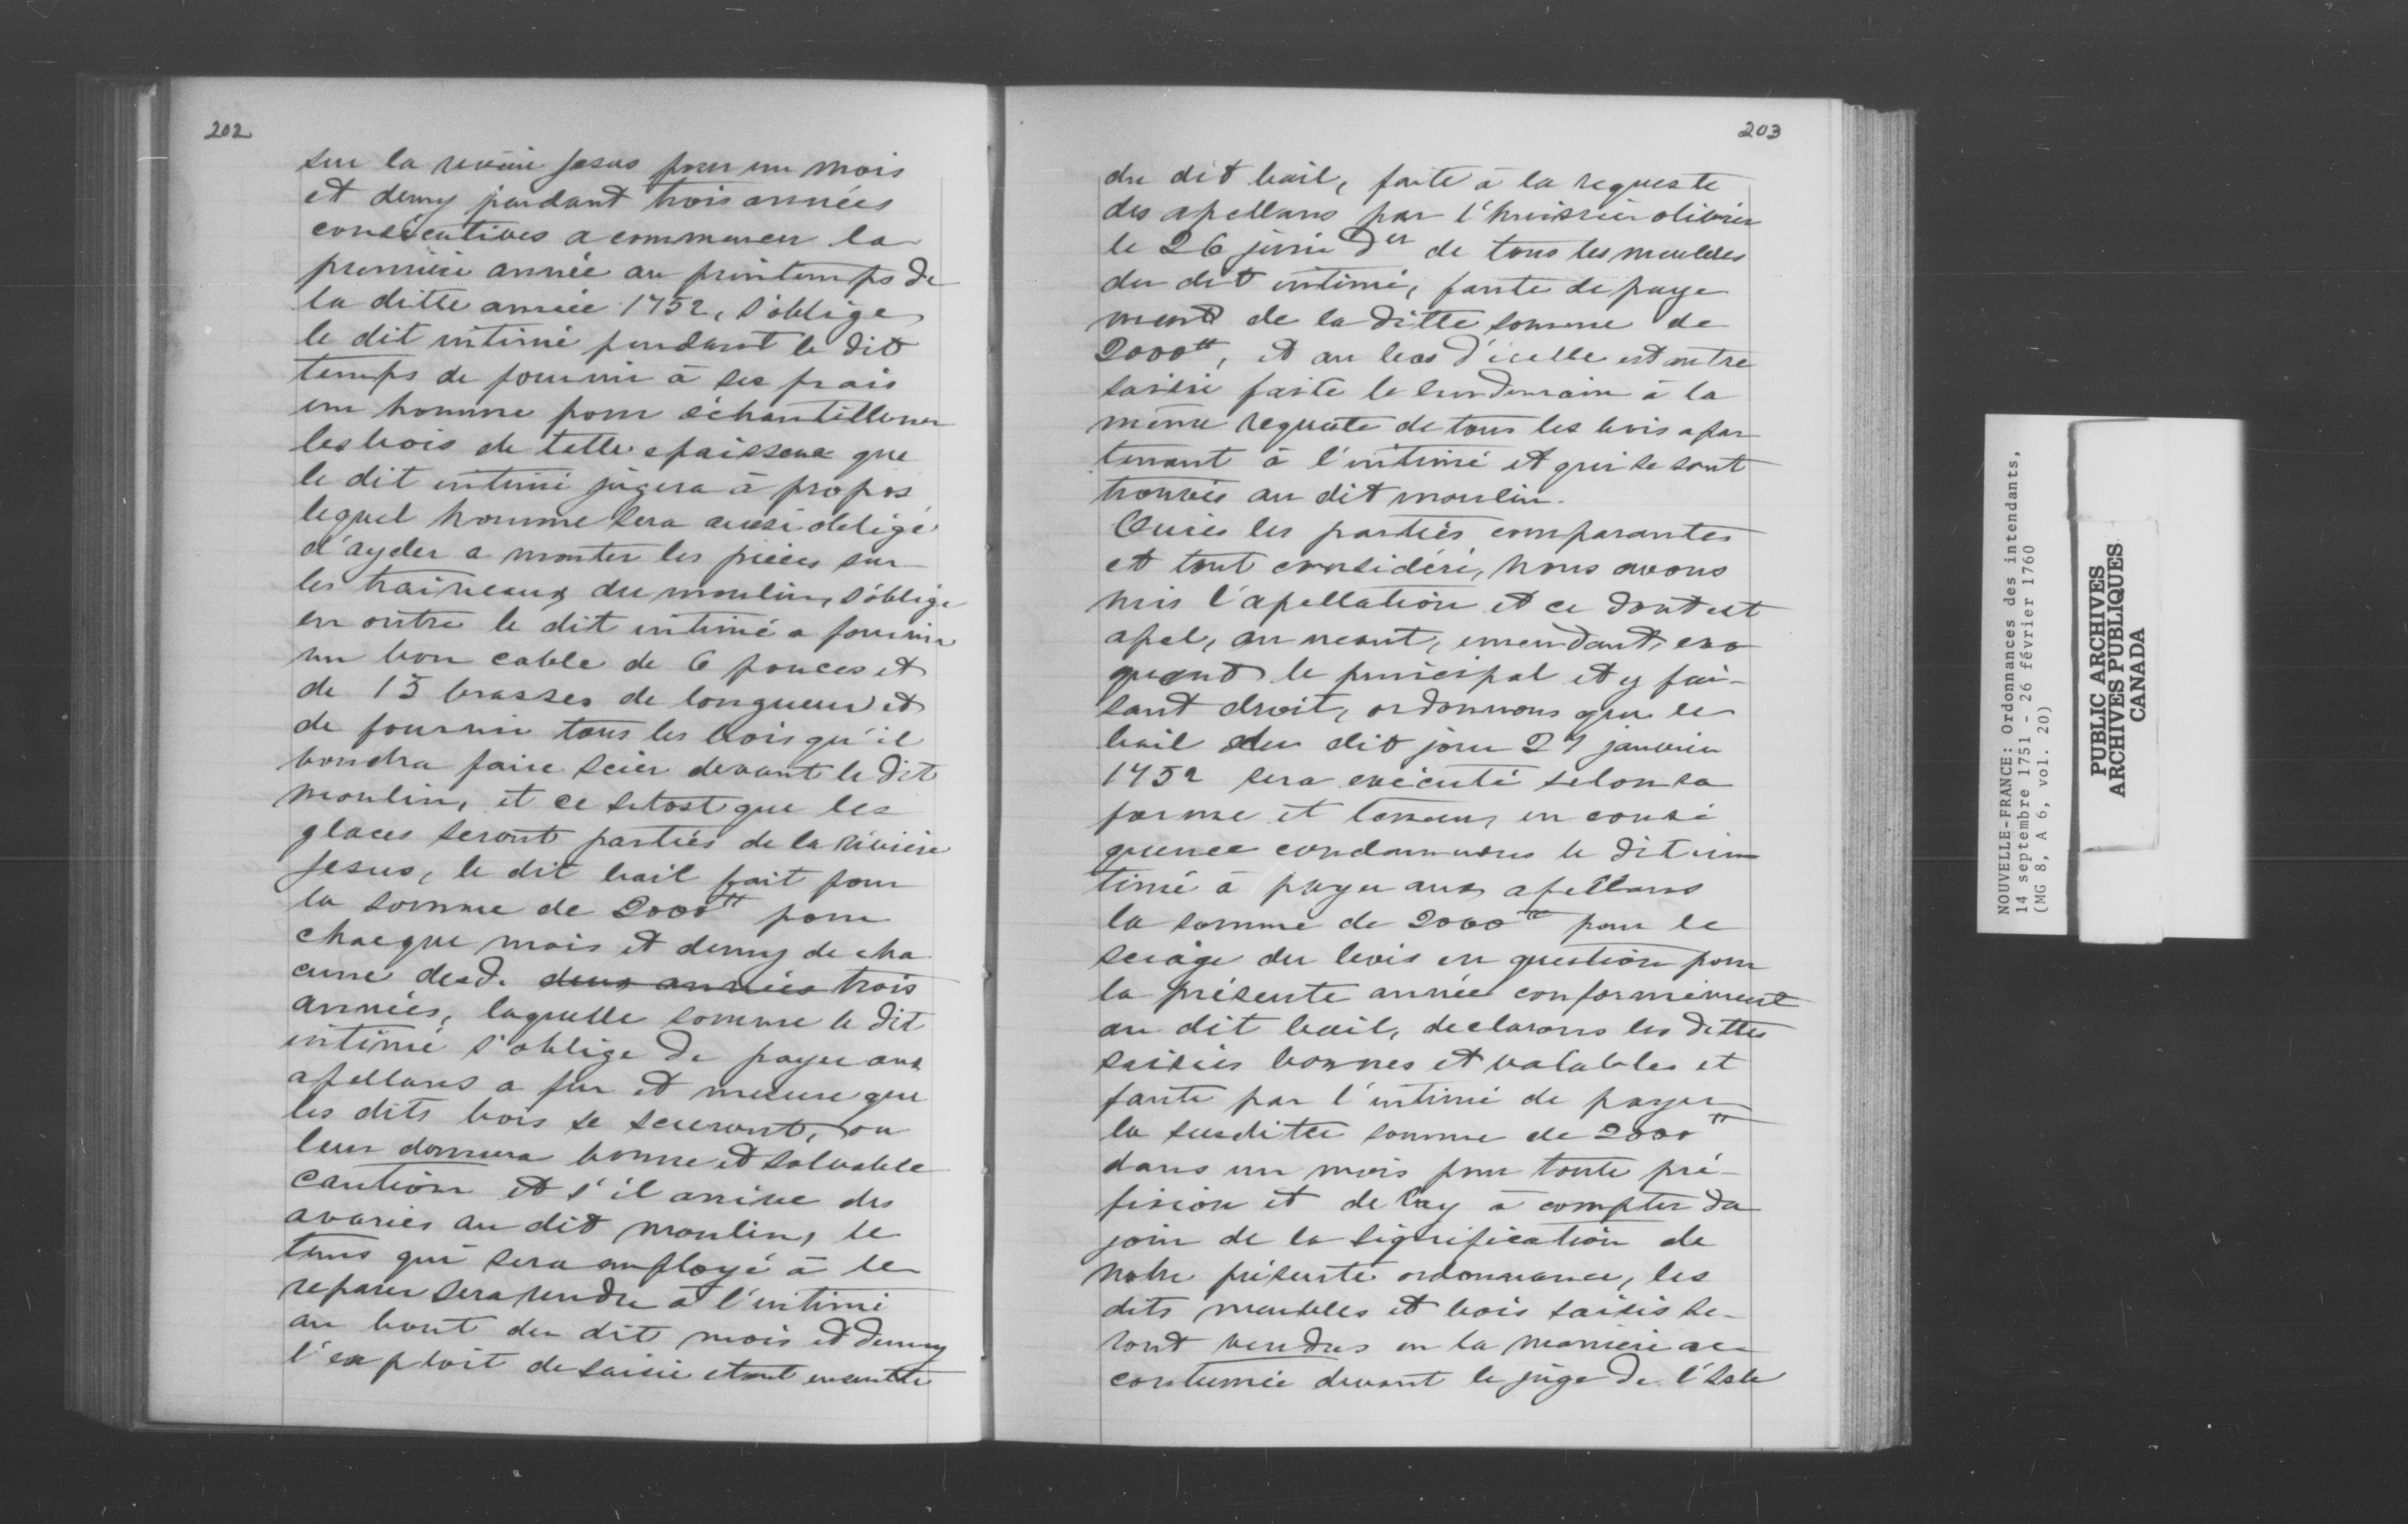 202
sur la rivière Jesus pour un mois
et demy pendant trois années
consécutives a commencer la
première année au printemps de
la ditte année 1752, s'oblige
le dit intimé pendant le dit
temps de fournir à ses frais
un homme pour échantilloner
les bois de telle epaisseur que
le dit intimé jugera à propos
lequel homme sera aussi obligé
d'ayder a monter les pièces sur
les traineaux du moulin, s'oblige
en outre le dit intimé a fournir
un bon cable de 6 pouces et
de 15 brasses de longueur et
de fournir tous les bois qu'il
voudra faire scier devant le dit
moulin, et ce sitost que les
glaces seront parties de la rivière
Jesus, le dit bail fait pour
la somme de 2000tt pour
chacque mois et demy de cha
cune desd. deux années trois
années, laquelle somme le dit
intimé s'oblige de payer aux
apellans a fur et mesure que
les dits bois se scieront, ou
leur donnera bonne et solvable
caution et s'il arrive des
avaries au dit moulin, le
tems qui sera employé à le
reparer sera rendu à l'intimé
au bout du dit mois et demy
l'exploit de saisie etant ensuitte
203
du dit bail, faite à la requeste
des apellans par l'huissier olivier
le 26 juin der de tous les meubles
du dit intimé, faute de paye
ment de la ditte somme de
2000tt, et au bas d'icelle est autre
saisie faite le lendemain à la
même requête de tous les bois apar
tenant à l'intimé et qui se sont
trouvés au dit moulin.
Ouies les parties comparantes
et tout considéré, nous avons
mis l'apellation et ce dont est
apel, au neant, emendant, evo
quant le principal et y fai-
sant droit, ordonnons que le
bail du dit jour 21 janvier
1752 sera exécuté selon sa
forme et teneur, en consé
quence condamnons le dit in
timé à payer aux apellans
la somme de 2000tt pour le
sciage du bois en question pour
la présente année conformément
au dit bail, declarons les dittes
saisies bonnes et valables et
faute par l'intimé de payer
la susditte somme de 2000tt
dans un mois pour toute pré-
fixion et delay à compter du
jour de la signification de
notre présente ordonnance, les
dits meubles et bois saisis se-
ront vendus en la manière ac-
coutumée devant le juge de l'Isle
NOUVELLE-FRANCE: Ordonnances des intendants,
14 septembre 1751 - 26 février 1760
(MG 8, A 6, vol. 20)
PUBLIC ARCHIVES
ARCHIVES PUBLIQUES
CANADA